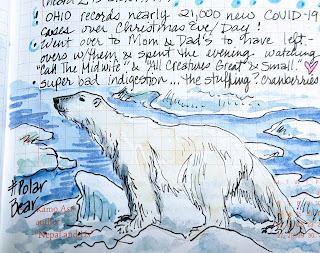 • OHIO records nearly 21,000 new COVID-19
cases over Christmas Eve/Day!
• Went over to Mom & Dad's to have left-
overs w/them & spent the evening watching
"Call The Midwife" & "All Creatures Great & Small."
• Super bad indigestion...the stuffing? cranberries
#Polar
Bear